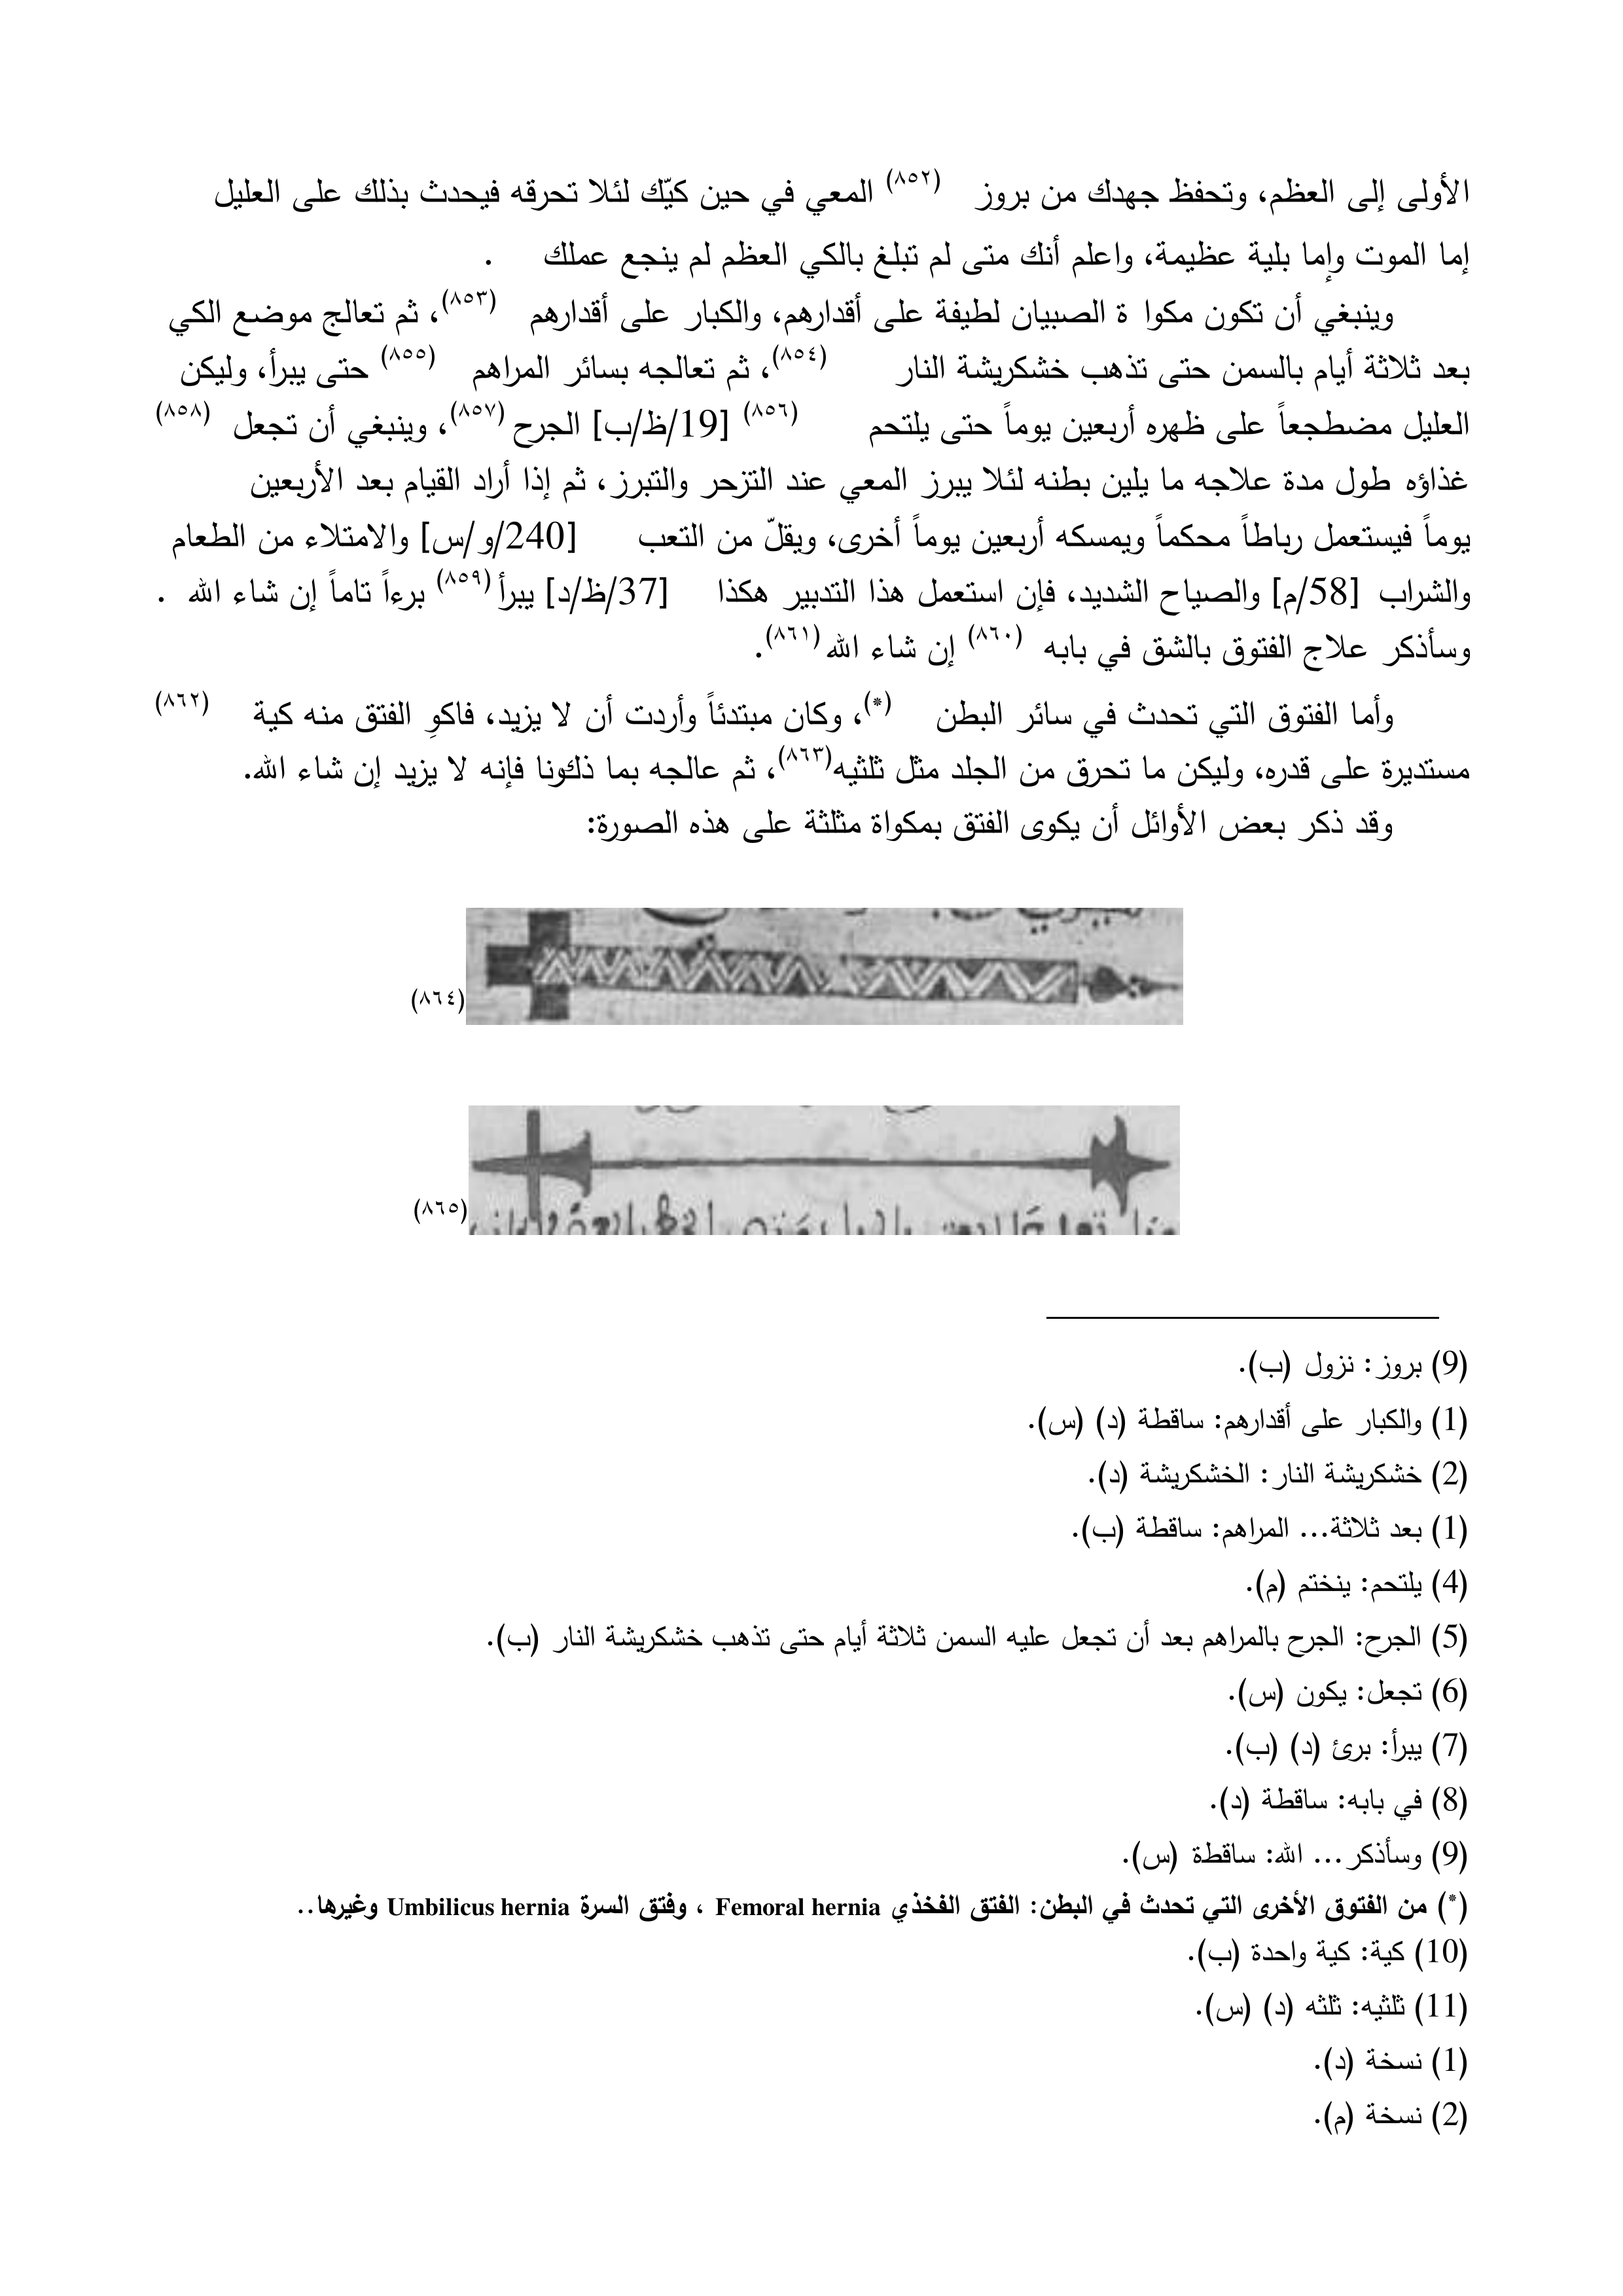 الأولى إلى العظم، وتحفظ جهدك من بروز (٨٥٢) المعي في حين كيّك لئلا تحرقه فيحدث بذلك على العليل
إما الموت وإما بلية عظيمة، واعلم أنك متى لم تبلغ بالكي العظم لم ينجع عملك .
وينبغي أن تكون مكوا ة الصبيان لطيفة على أقدارهم، والكبار على أقدارهم (٨٥٣)، ثم تعالج موضع الكي
بعد ثلاثة أيام بالسمن حتى تذهب خشكريشة النار (٨٥٤)، ثم تعالجه بسائر المراهم (٨٥٥) حتى يبرأ، وليكن
العليل مضطجعاً على ظهره أربعين يوماً حتى يلتحم (٨٥٦) [19/ظ/ب] الجرح(٨٥٧)، وينبغي أن تجعل (٨٥٨)
غذاؤه طول مدة علاجه ما يلين بطنه لئلا يبرز المعي عند التزحر والتبرز، ثم إذا أراد القيام بعد الأربعين
يوماً فيستعمل رباطاً محكماً ويمسكه أربعين يوماً أخرى، ويقلّ من التعب [240/و/س] والامتلاء من الطعام
والشراب [58/م] والصياح الشديد، فإن استعمل هذا التدبير هكذا [37/ظ/د] يبرأ(٨٥٩) برءاً تاماً إن شاء الله .
وسأذكر علاج الفتوق بالشق في بابه (٨٦٠) إن شاء الله(٨٦١).
وأما الفتوق التي تحدث في سائر البطن (*)، وكان مبتدئاً وأردت أن لا يزيد، فاكوِ الفتق منه كية (٨٦٢)
مستديرة على قدره، وليكن ما تحرق من الجلد مثل ثلثيه(٨٦٣)، ثم عالجه بما ذكونا فإنه لا يزيد إن شاء الله.
وقد ذكر بعض الأوائل أن يكوى الفتق بمكواة مثلثة على هذه الصورة:
(٨٦٤)
(٨٦٥)
(9) بروز: نزول (ب).
(1) والكبار على أقدارهم: ساقطة (د) (س).
(2) خشكريشة النار: الخشكريشة (د).
(1) بعد ثلاثة... المراهم: ساقطة (ب).
(4) يلتحم: ينختم (م).
(5) الجرح: الجرح بالمراهم بعد أن تجعل عليه السمن ثلاثة أيام حتى تذهب خشكريشة النار (ب).
(6) تجعل: يكون (س).
(7) يبرأ: برئ (د) (ب).
(8) في بابه: ساقطة (د).
(9) وسأذكر... الله: ساقطة (س).
(*) من الفتوق الأخرى التي تحدث في البطن: الفتق الفخذي Femoral hernia ، وفتق السرة Umbilicus hernia وغيرها..
(10) كية: كية واحدة (ب).
(11) ثلثيه: ثلثه (د) (س).
(1) نسخة (د).
(2) نسخة (م).